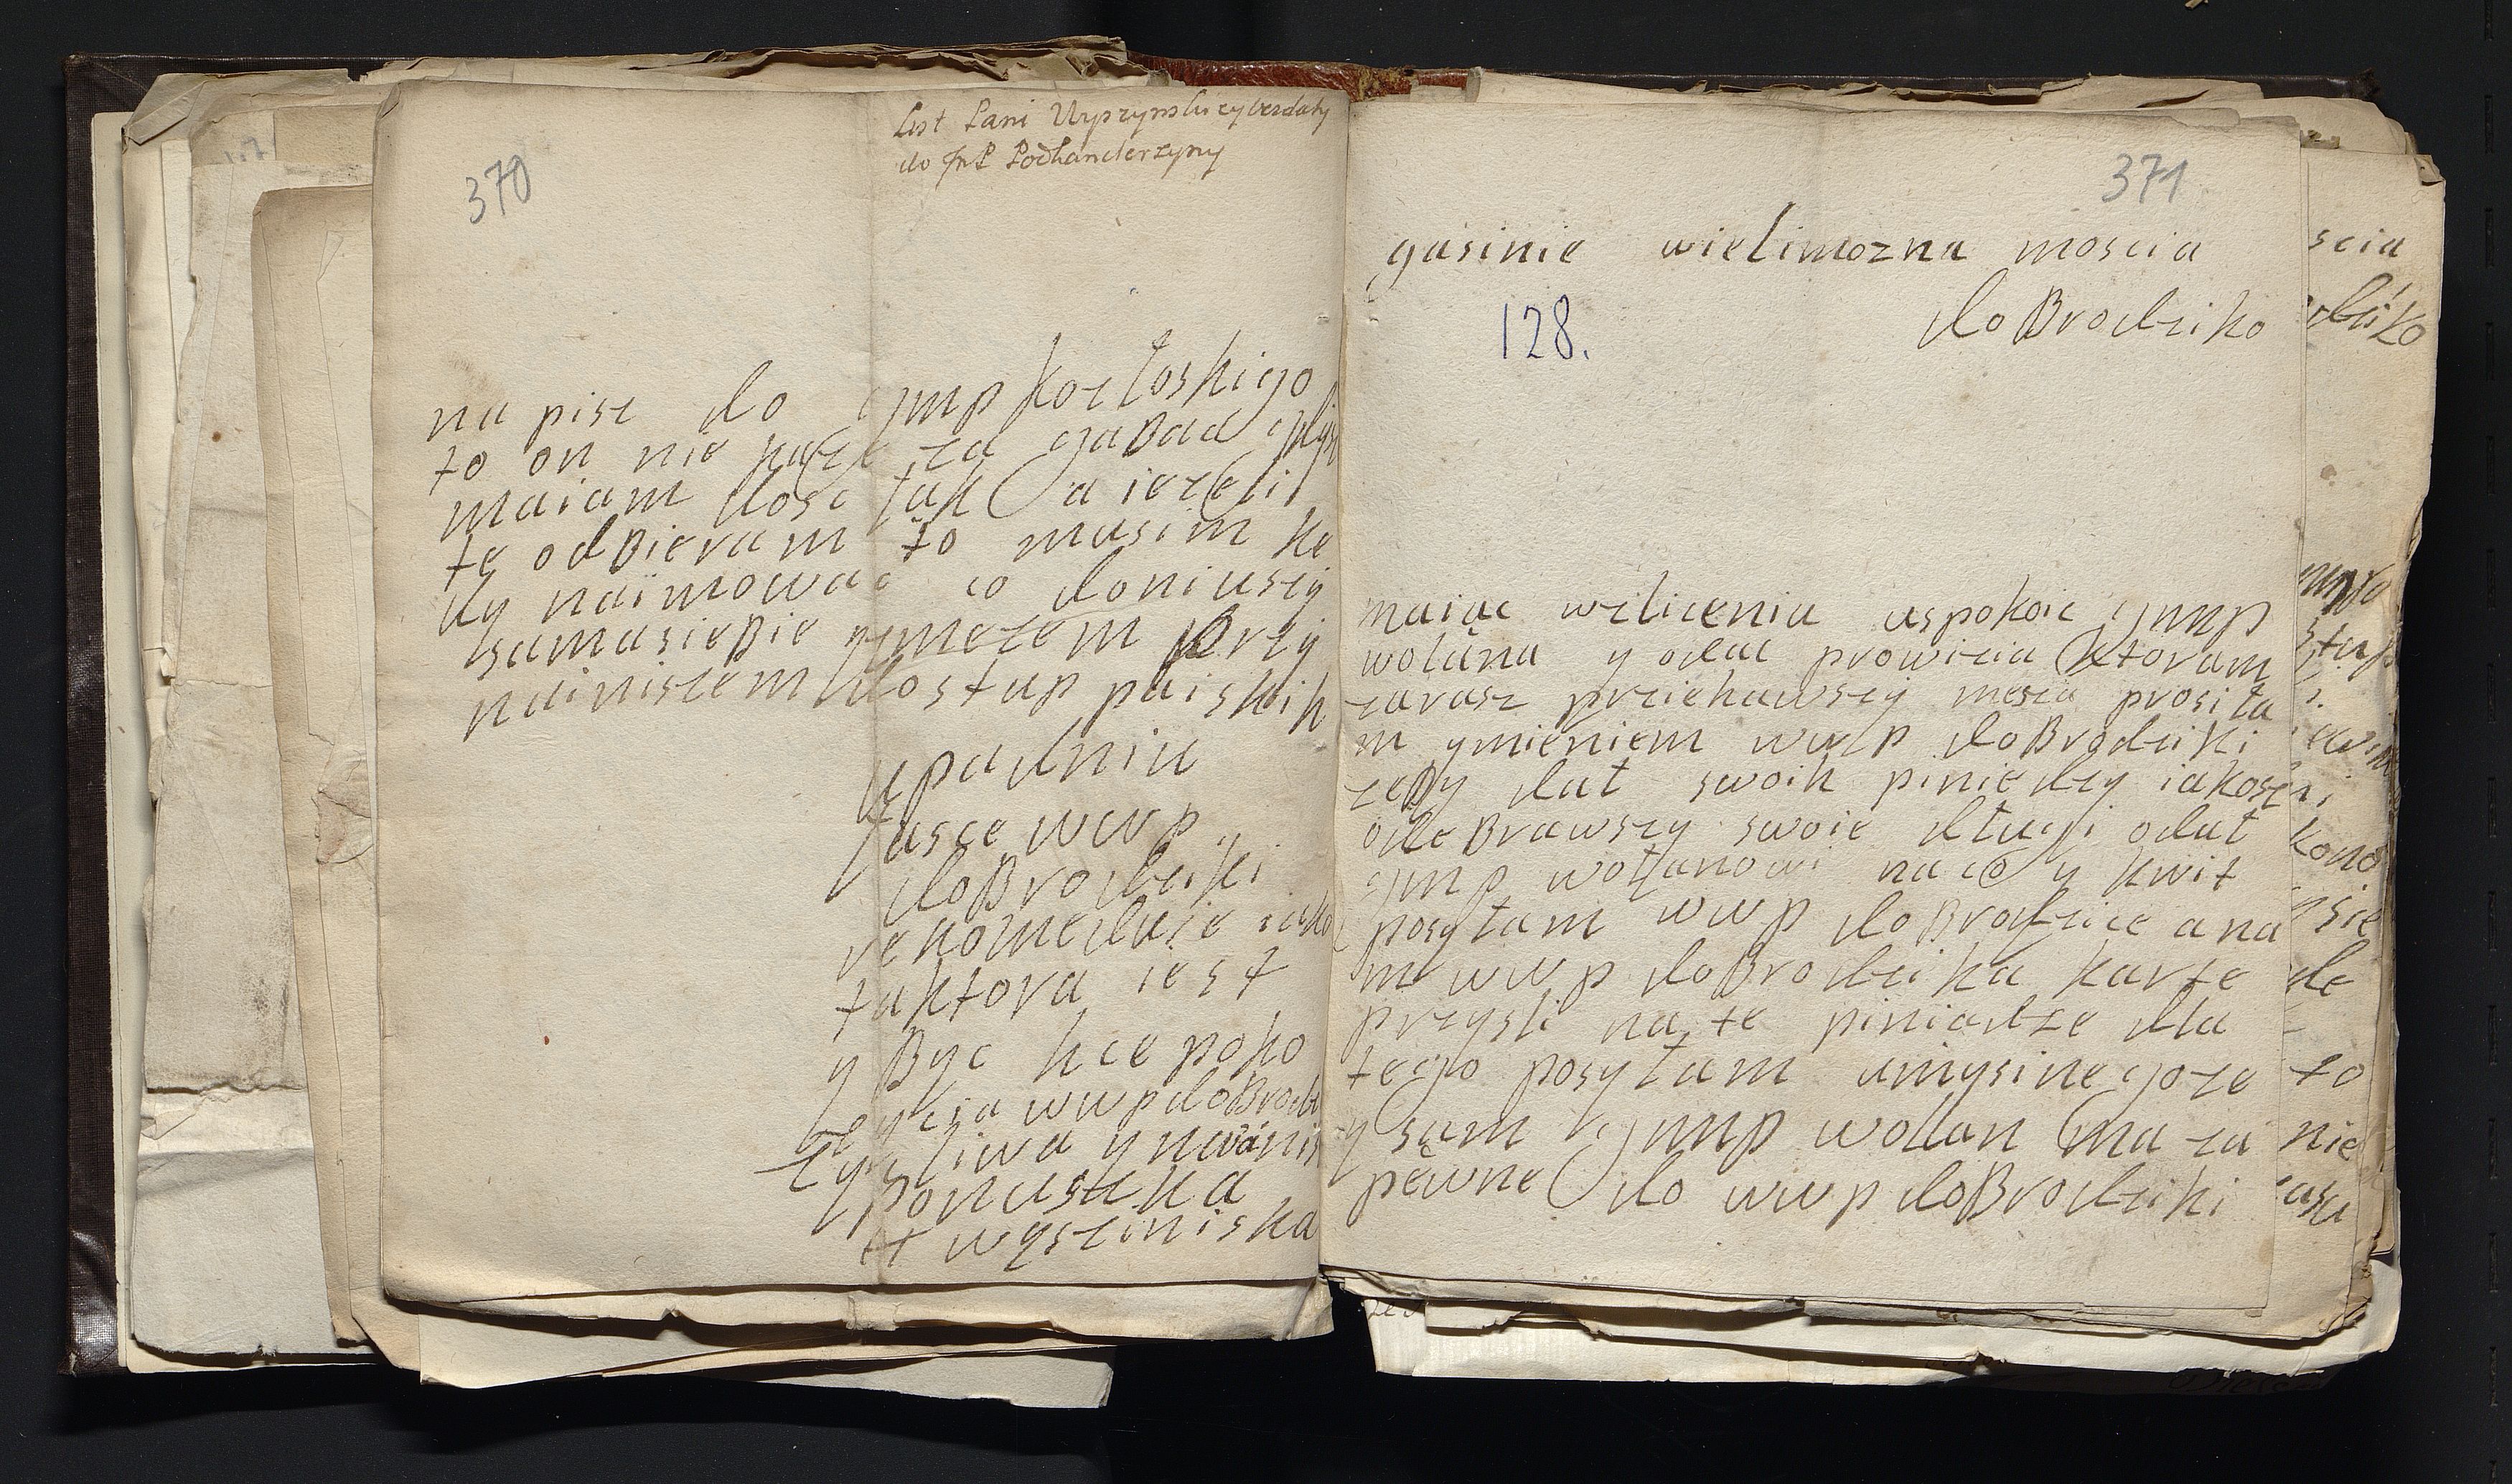 370
List Pani Uyrzynskiey bez daty
do JmP Podkanclerzyny
na pisz do gmp kozłoskigo
to on nie każe za gaBad
maiam dosc tak a iezeli
te odBieram to musim ke
dy naimowac co doniuszy
samasieBie ymezem przy
nainiszem dostup paiskih
upadniu
łasce wwp
doBrodziki
rekomeduie iako
taktora iest
y Byc hce poko
wwpdoBrodzi
zyczliwa ynizani
ponuszka
wyszeiniska
371
gasinie wielimozna moscia
doBrodziko
128.
maiac wzliceniu uspokoic gmp
wolana y odac prowizia ktoram
zarasz prziehawszy mesza prosiła
m ymieniem wwp doBrodziki
zeBy dał swoih piniedzy iakosz
odeBrawszy swoie długi odał
gmp wolanowi na co y kwit
posyłam wwp doBrodzice ana
m wwp doBrodzika karte
przysli na te piniadze dla
tego posyłam umysinegoze
y sam gmp wolan ma za
pewne do wwp doBrodziki
scia
to
nie